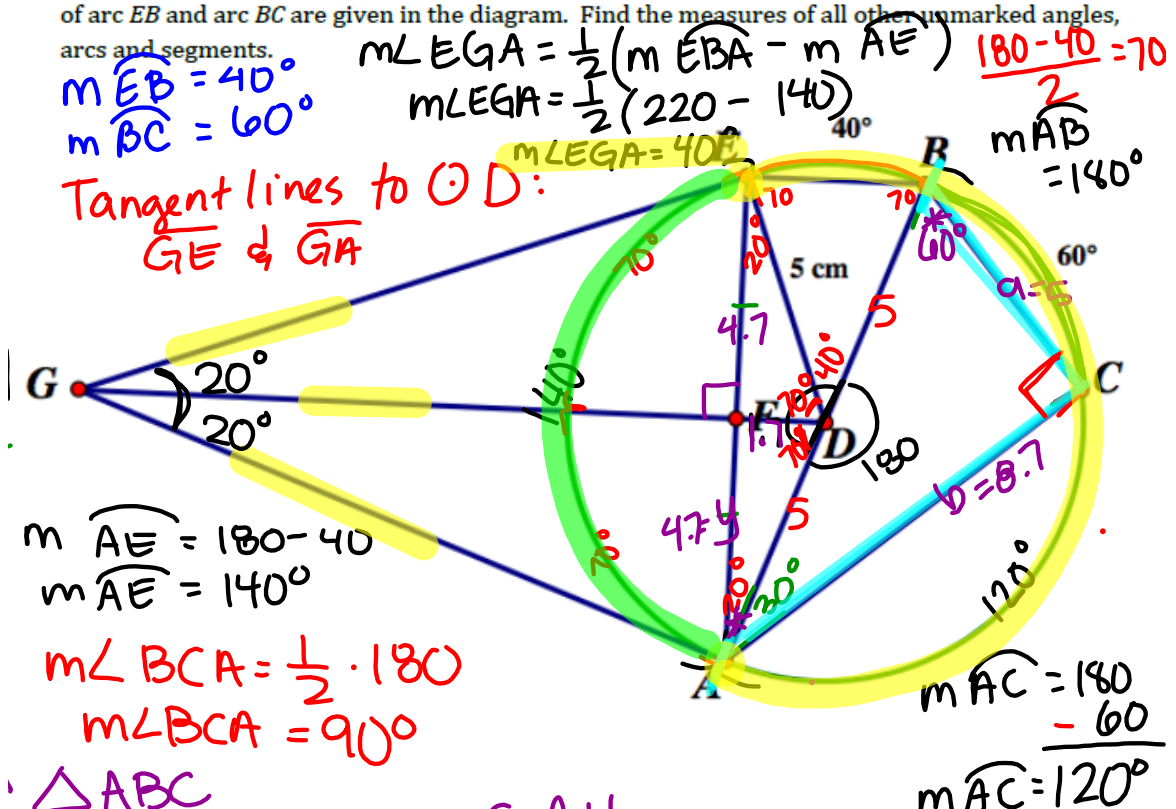 of arc EB and arc BC are given in the diagram. Find the measures of all other unmarked angles,
arcs and segments.
m EB = 40°
m BC = 60°
m∠EGA = 1/2 (m EBA - m AE)
m∠EGA = 1/2 (220 - 140)
m∠EGA = 40°
180-40 / 2 = 70
mAB
= 180°
Tangent lines to ⊙D:
GE & GA
E
40°
B
70
70
60°
60°
70°
20°
5 cm
5
a=5
4.7
G
20°
20°
140°
70°
40°
F
1.7
70°
D
180
C
b=8.7
4.7=y
5
70°
20°
30°
120°
A
m AE = 180-40
mAE = 140°
m∠BCA = 1/2 · 180
m∠BCA = 90°
mAC = 180
- 60
mAC = 120°
△ABC